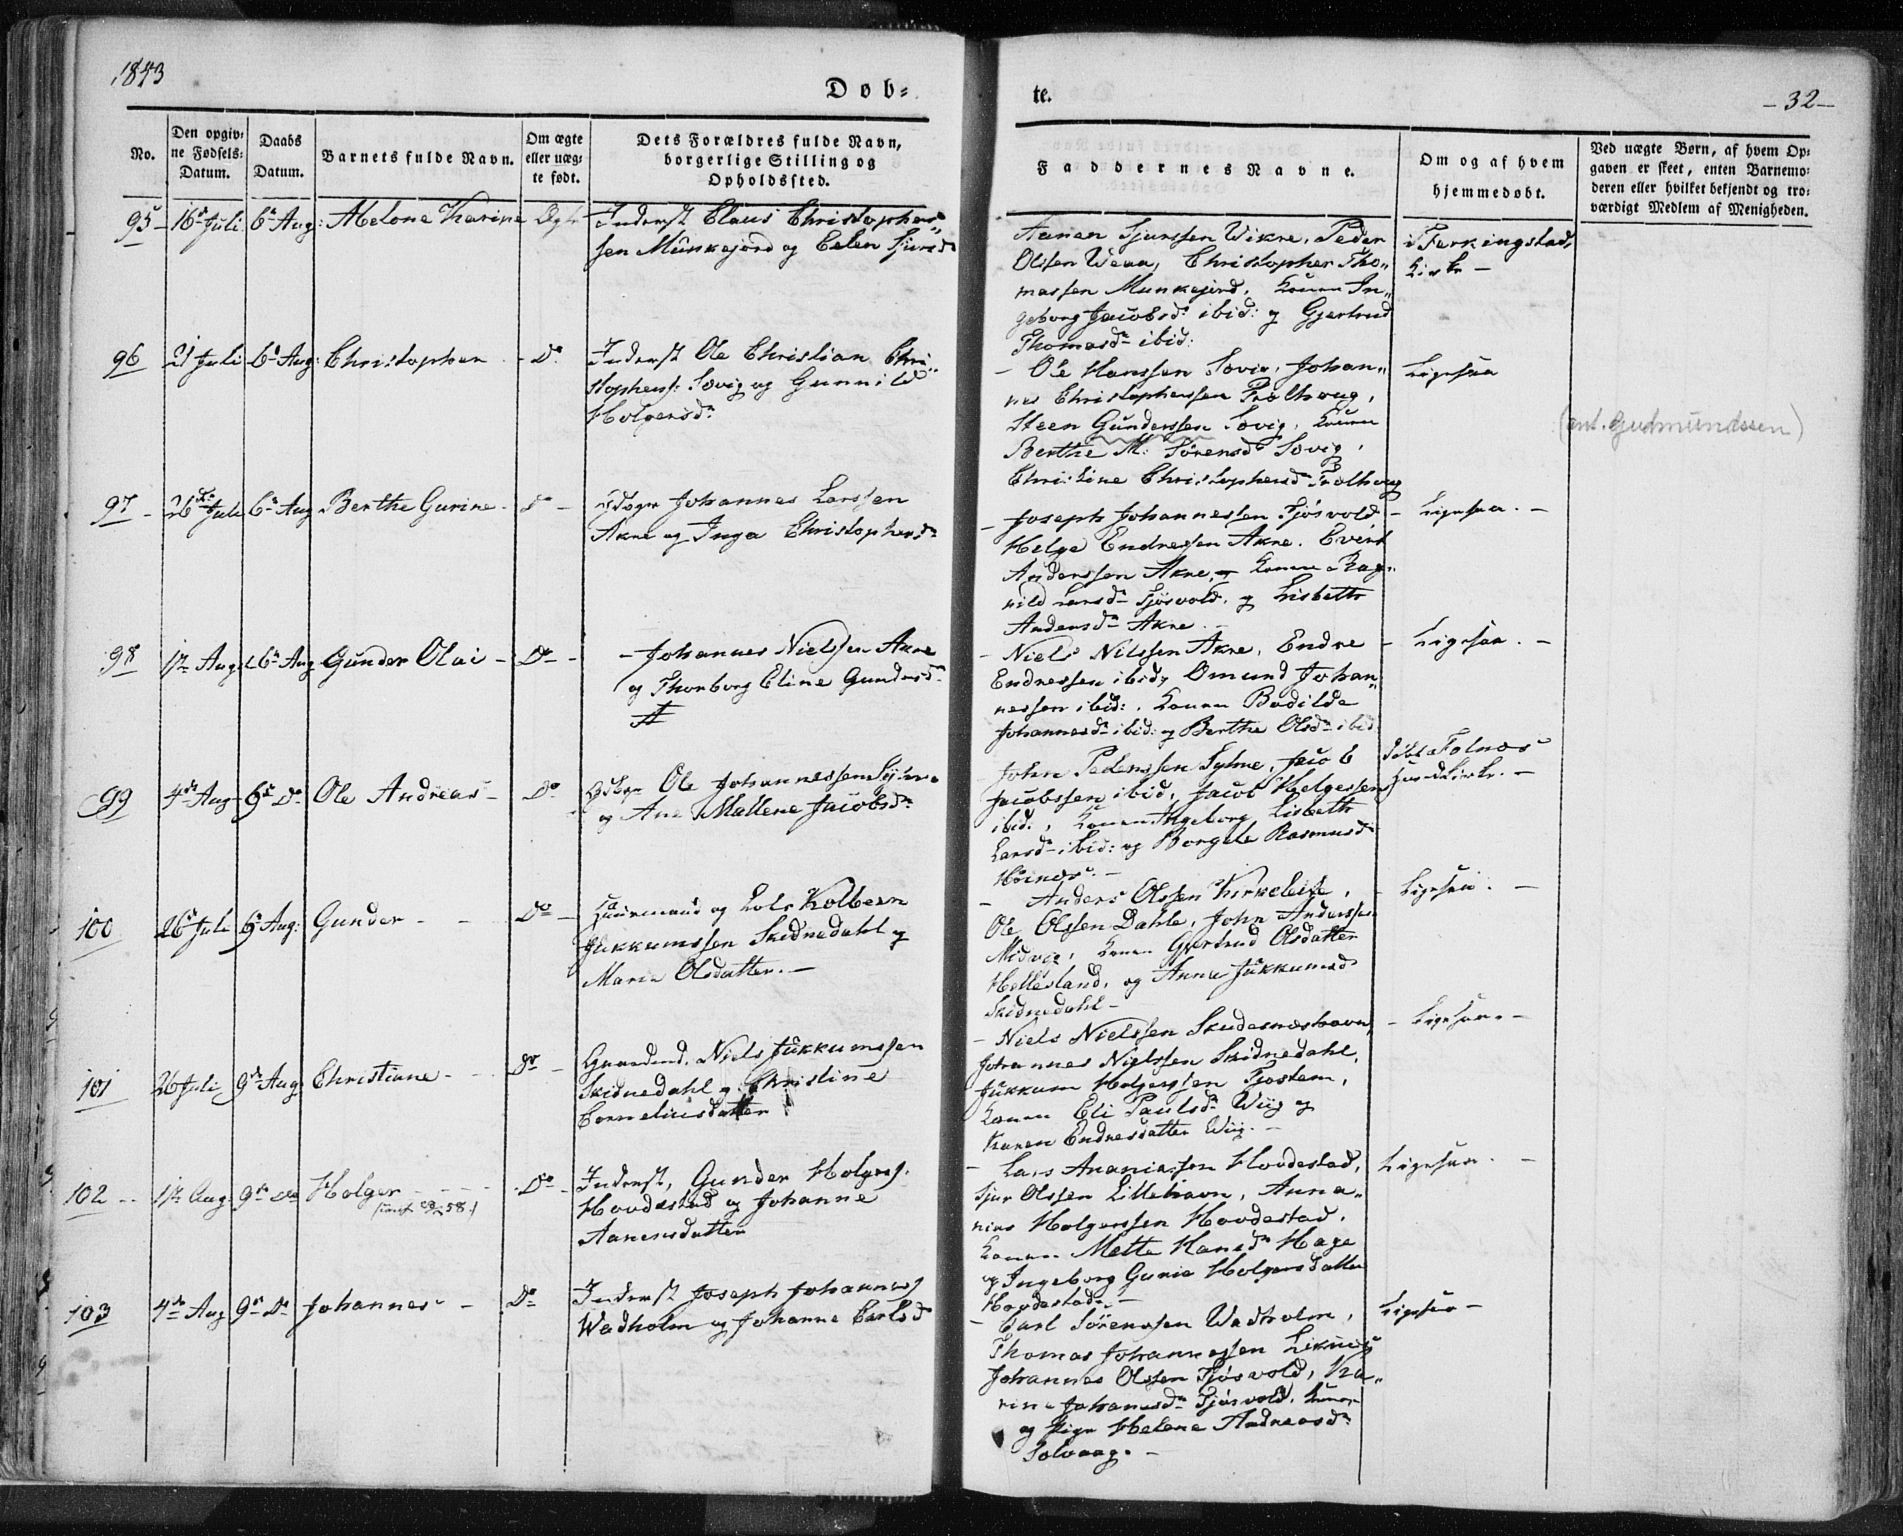 1843
Døb-
te.
- 32 -
No.
Den opgiv-
ne Fødsels-
Datum.
Daabs
Datum.
Barnets fulde Navn.
Om ægte
eller uæg-
te født.
Dets Forældres fulde Navn,
borgerlige Stilling og
Opholdssted.
Faddernes Navne.
Om og af hvem
hjemmedøbt.
Ved uægte Børn, af hvem Op-
gaven er skeet, enten Barnemo-
deren eller hvilket bekjendt og tro-
værdigt Medlem af Menigheden.
95 - 16de Juli 6te Aug: Abelone Karine Ægte Inderst Claus Christopher-
sen Munkejord og Eelen Sjursd.
Aanen Sjurssen Wikre, Peder
Olssen Weaa, Christopher Tho-
massen Munkejord, Konen In-
geborg Jacobsd. ibid: og Gjertrud
Thomasd. ibid:
i Ferkingstad
Kirke -
96 21 Juli 6te Aug: Christopher - Do. Inderst Ole Christian Chri-
stophers: Sævig og Gunnild
Holgersd.
- Ole Hanssen Sævig, Johan-
nes Christophersen Trølhoug,
Steen Gunderssen Sævig, Konen
Berthe M: Sørensd. Sævig,
Christine Christophersd. Trolhoug
Ligesaa
(ant. Gudmundssen)
97 - 26de Juli 6te Aug Berthe Gurine - Do - Johannes Larssen
Akre og Inga Christophersd.
- Joseph Johannessen Sjøsvold,
Helge Endressen Akre, Evert
Anderssen Akre, Konen Rag-
nild Larsd. Sjøsvold, og Lisbeth
Andersd. Akre.
- Ligesaa. -
98 1ste Aug 6te Aug Gunder Olai - Do - - Johannes Nielssen Akre
og Thorborg Eline Gundersd.
- Niels Nilssen Akre, Endre
Endressen ibid, Omund Johan-
nessen ibid:, Konen Bodilde
Johannesd. ibid: og Berthe Olsd. ibid
- Ligesaa. -
99 4de Aug 6te Do. Ole Andreas - Do. Ole Johannessen
og Ane Mallene Jacobsd.
John Pederssen Jacob
Jacobssen ibid, Jacob Helgessen
ibid., Konen Ingeborg Lisbeth
Larsd. ibid: og Borgele Rasmusd
Høines. -
Falnæs
Hovedkirke. -
100 26 Juli 6te Aug: Gunder - - Do - Kolbein
Jükkumssen Skidnedahl og
Maria Olsdatter. -
- Anders Olssen Kirkeleite,
Ole Olssen Dahle, John Anderssen
Midvig, Konen Gjertrud Olsdatter
Hellesland, og Anna Jükkumsd
Skidnedahl -
- Ligesaa. -
101 26 Juli 9de Aug Christiane - - Do - Gaardmd. Niels Jükkumssen
Skidnedahl og Christine
Corneliusdatter
- Niels Nielssen Skudesnæshavn,
Johannes Nielssen Skidnedahl,
Jükkum Holgerssen Tjostem,
Konen Eli Paulsd. Wiig og
Karen Endresdatter Wiig. -
- Ligesaa. -
102 - - 1ste Aug. 9de do Holger - - - - Do - Inderst, Gunder Holgers.
Hovdestad og Johanne
Aanensdatter
- Lars Ananiassen Hovdestad,
Sjur Olssen Lillehavn, Anna-
nias Holgerssen Hovdestad,
Konen Mette Hansd. Hage
og Ingeborg Gurie Holgersdatter
Hovdestad. -
Ligesaa. -
103 4de Aug 9de Do Johannes - Do Inderst Joseph Johanness
Wadholm og Johanne Carlsd
- Carl Sørenssen Wadholm,
Thomas Johannessen Liknes
Johannes Olssen Sjøsvold, Ka-
rine Johannesd. Sjøsvold, Konen
og Pige Helene Andreasd.
Solvaag. -
Ligesaa -